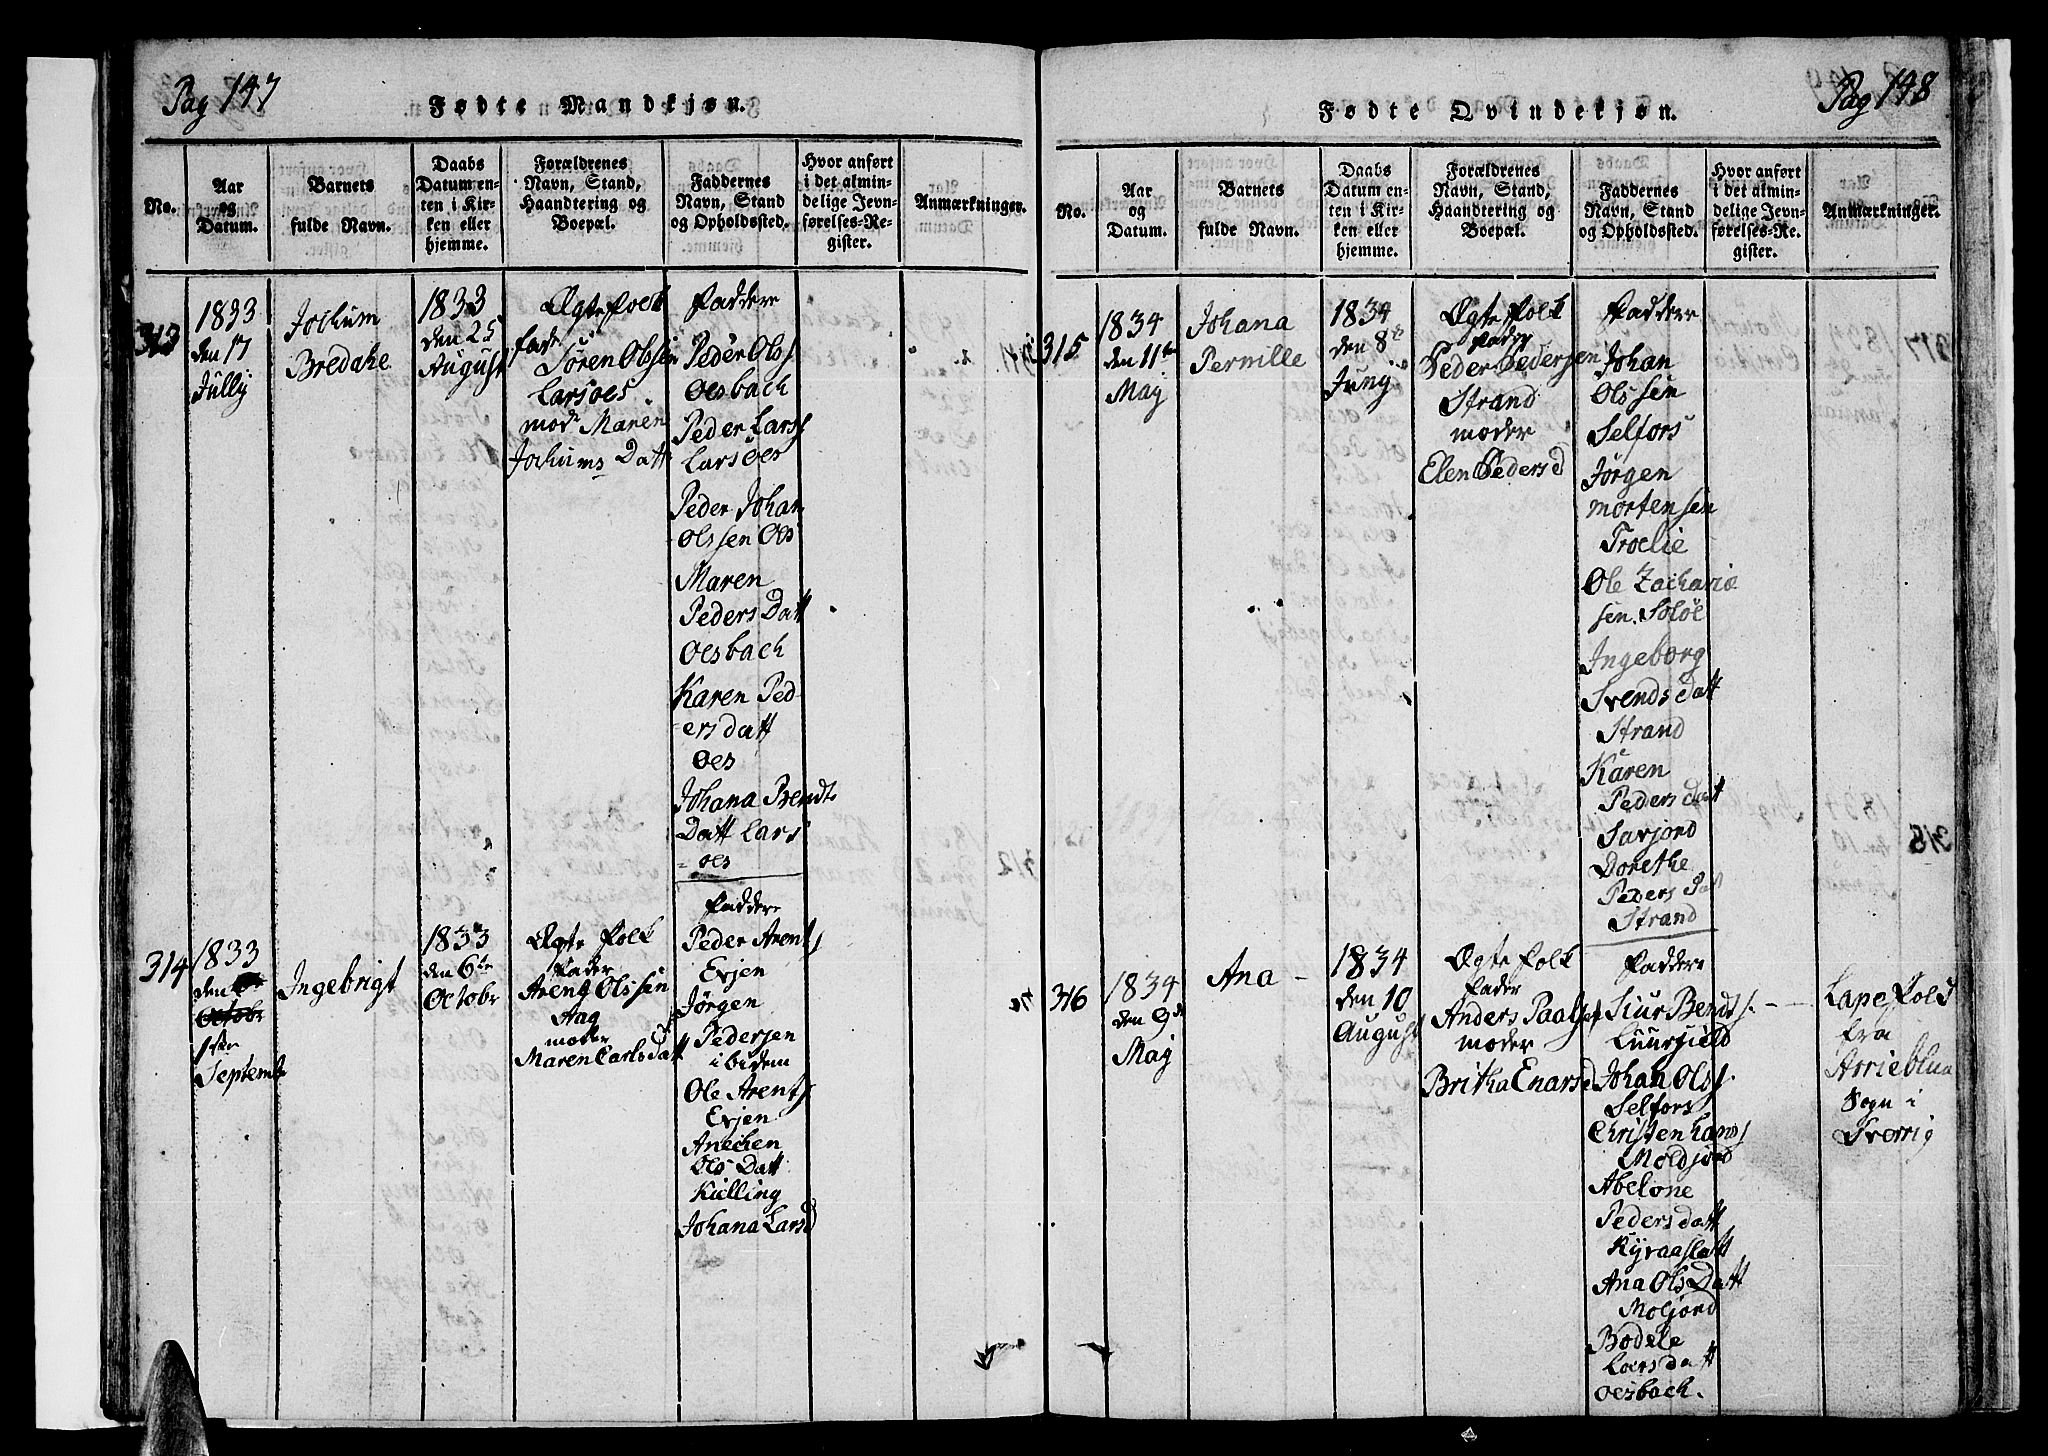 Pag 147
Fødte Mandkjøn.
No.
Aar
og
Datum.
Barnets
fulde Navn.
Daabs
Datum en-
ten i Kir-
ken eller
hjemme.
Forældrenes
Navn, Stand,
Haandtering og
Boepæl.
Faddernes
Navn, Stand
og Opholdssted.
Hvor anført
i det almin-
delige Jevn-
førelses-Re-
gister.
Anmærkninger.
313
1833
den 17
Jully
Jochum
Bredahe
1833
den 25
August
Ægte Folk
fadr
Sören Olssen
Larsoes
modr Maren
Jochums Datt
Faddere
Peder Olss
Oesbach
Peder Larss
Larsöes
Peder Johan
Olssen Oes
Maren
Peders Datt
Oesbach
Karen Ped-
ersdatt
Oes
Johana Bendts
Datt Lars
=oes
314
1833
den
Octobr
1ster
Septemb
Ingebrigt
1833
den 6te
Octobr
Ægte Folk
Fader
Arent Olssen
Aag
moder
Maren Carlsdatt
Faddere
Peder Arents
Evjen
Jörgen
Pedersen
ibidem
Ole Arents
Evjen
Anechen
Ols Datt
Kulling
Johana Larsd
Pag 148
Fødte Qvindekjøn.
No.
Aar
og
Datum.
Barnets
fulde Navn.
Daabs
Datum en-
ten i Kir-
ken eller
hjemme.
Forældrenes
Navn, Stand,
Haandtering og
Boepæl.
Faddernes
Navn, Stand
og Opholdssted.
Hvor anført
i det almin-
delige Jevn-
førelses-Re-
gister.
Anmærkninger.
315
1834
den 11te
May
Johana
Pernille
1834
den 8de
Juny
Ægte Folk
Fader
Peder Pedersen
Strand
moder
Elen Pedersd
Faddere
Johan
Olssen
Selfors
Jörgen
mortensen
Troelie
Ole Zacharia
sen. Soløe
Ingeborg
Svends datt
Strand
Karen
Peders datt
Savjord
Dorethe
Peders Dat
Strand
316
1834
den 9de
May
Ana –
1834
den 10
August
Ægte Folk
Fader
Anders Paalsen
moder
Britha Enarsd
Faddere
Siur Bendts.
Luurfield
Johan Olss
Selfors
Christen Hans
Moldjord
Abelone
Peders datt
Kyraaslatt
Ana Ols Datt
Moljord
Bodele
Larsdatt
Oesbach.
Lape Folk
fra
Sogn i
Sverrig